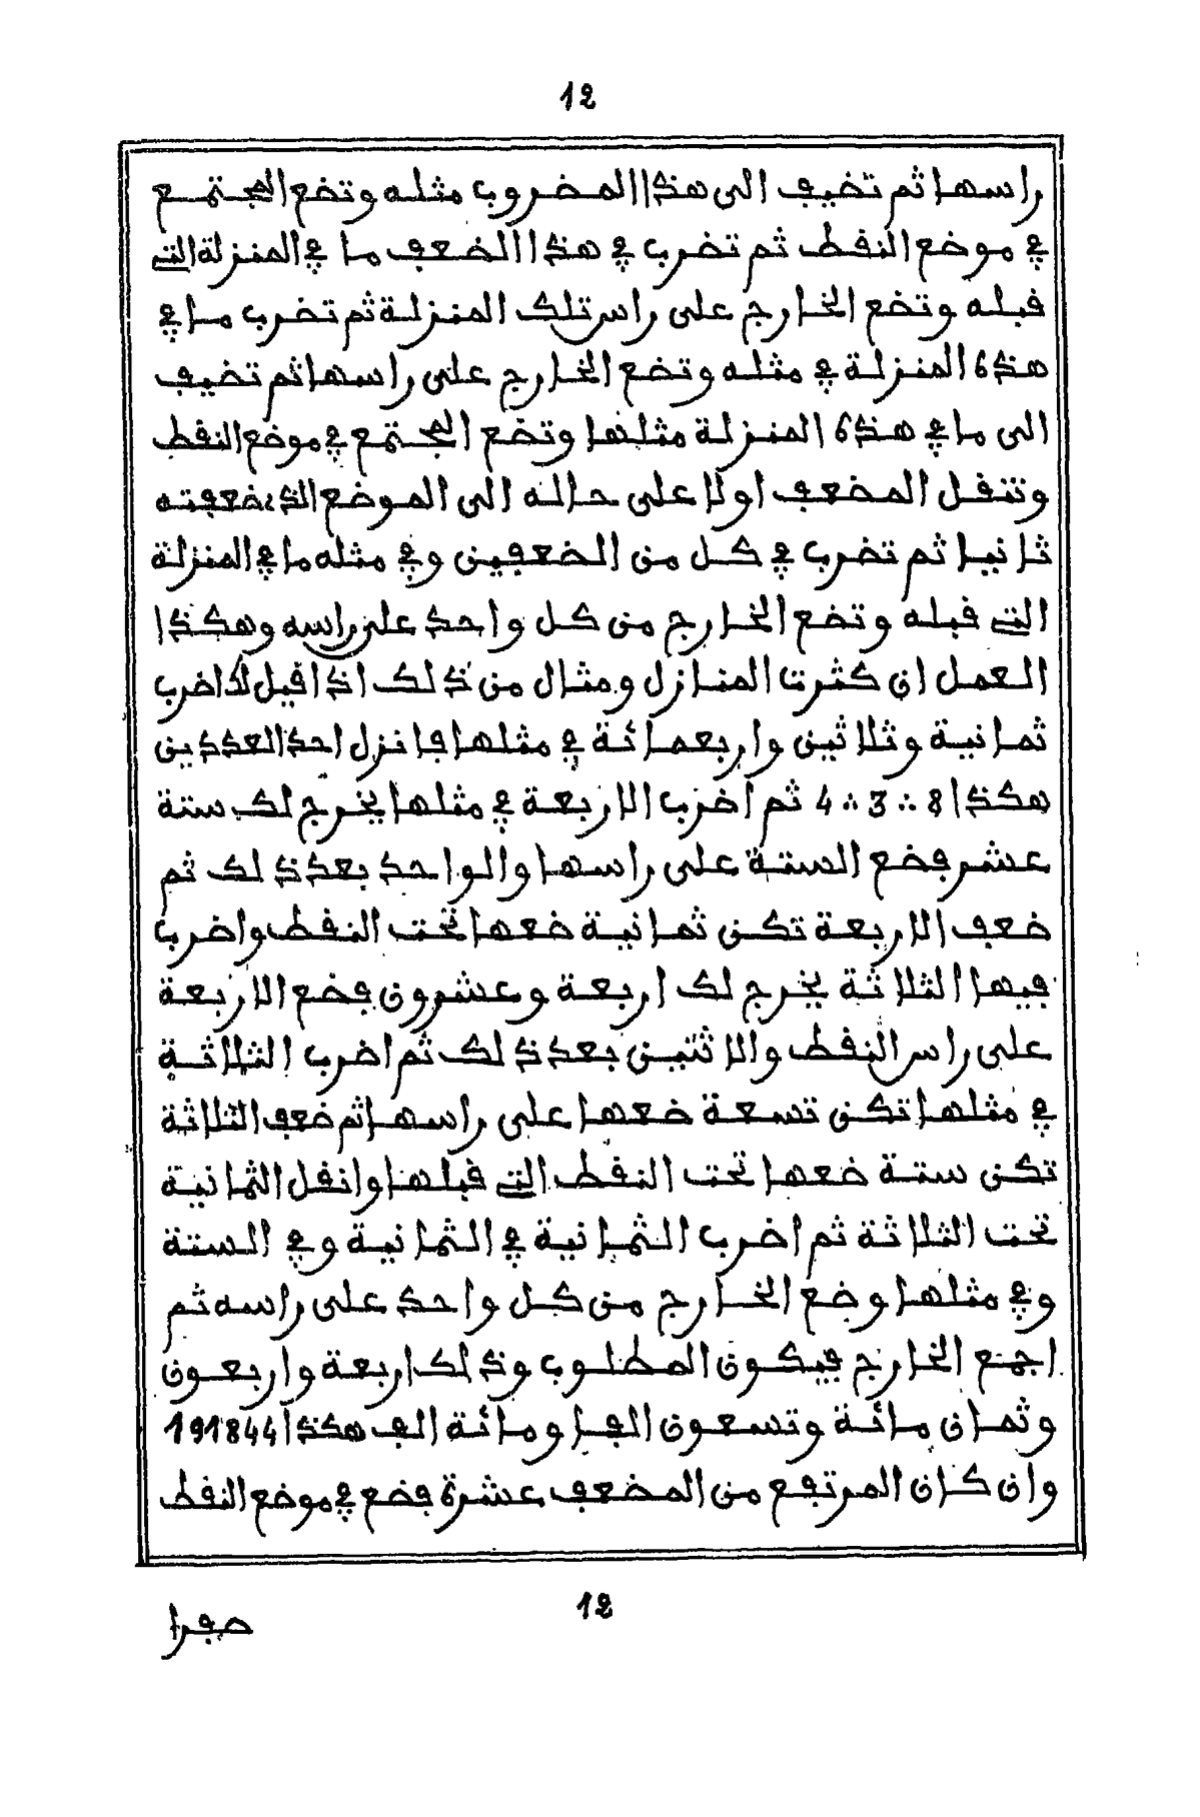 12
راسها ثم تضيف الى هذا المضروب مثله وتضع المجتمع
في موضع النقط ثم تضرب في هذا الضعف ما في المنزلة التي
قبله وتضع الخارج على راس تلك المنزلة ثم تضرب ما في
هذه المنزلة في مثله وتضع الخارج على راسها ثم تضيف
الى ما في هذه المنزلة مثلها وتضع المجتمع في موضع النقط
وتنقل المضعف اولا على حاله الى الموضع الذي ضعفته
ثانيا ثم تضرب في كل من الضعفين وفي مثله ما في المنزلة
التي قبله وتضع الخارج من كل واحد على راسه وهكذا
العمل ان كثرت المنازل ومثال من ذلك اذا قيل لك اضرب
ثمانية وثلاثين واربعمائة في مثلها فانزل احد العددين
هكذا 8 ∴ 3 ∴ 4 ثم اضرب الاربعة في مثلها يخرج لك ستة
عشر فضع الستة على راسها والواحد بعد ذلك ثم
ضعف الاربعة تكن ثمانية ضعها تحت النقط واضرب
فيها الثلاثة يخرج لك اربعة وعشرون فضع الاربعة
على راس النقط والاثنين بعد ذلك ثم اضرب الثلاثة
في مثلها تكن تسعة ضعها على راسها ثم ضعف الثلاثة
تكن ستة ضعها تحت النقط التي قبلها وانقل الثمانية
تحت الثلاثة ثم اضرب الثمانية في الثمانية وفي الستة
وفي مثلها وضع الخارج من كل واحد على راسه ثم
اجمع الخارج فيكون المطلوب وذلك اربعة واربعون
وثمان مائة وتسعون الفا ومائة الف هكذا 191844
وان كان المرتفع من المضعف عشرة فضع في موضع النقط
12
صفرا